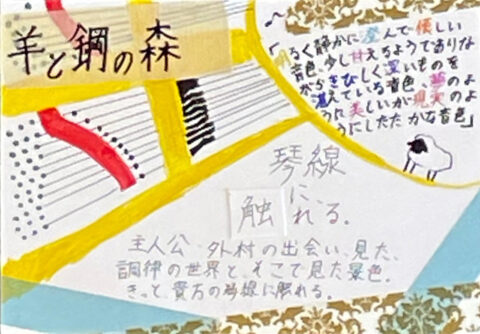 羊と鋼の森
「明るく静かに澄んで優しい
音色、少し甘えるようでありな
がらきびしく深いものを
湛えている音色、夢のよ
うに美しいが現実のよ
うにしたたかな音色」
琴線
に、
触れる。
主人公・外村の出会い、見た、
調律の世界と、そこで見た景色。
きっと、貴方の琴線に触れる。